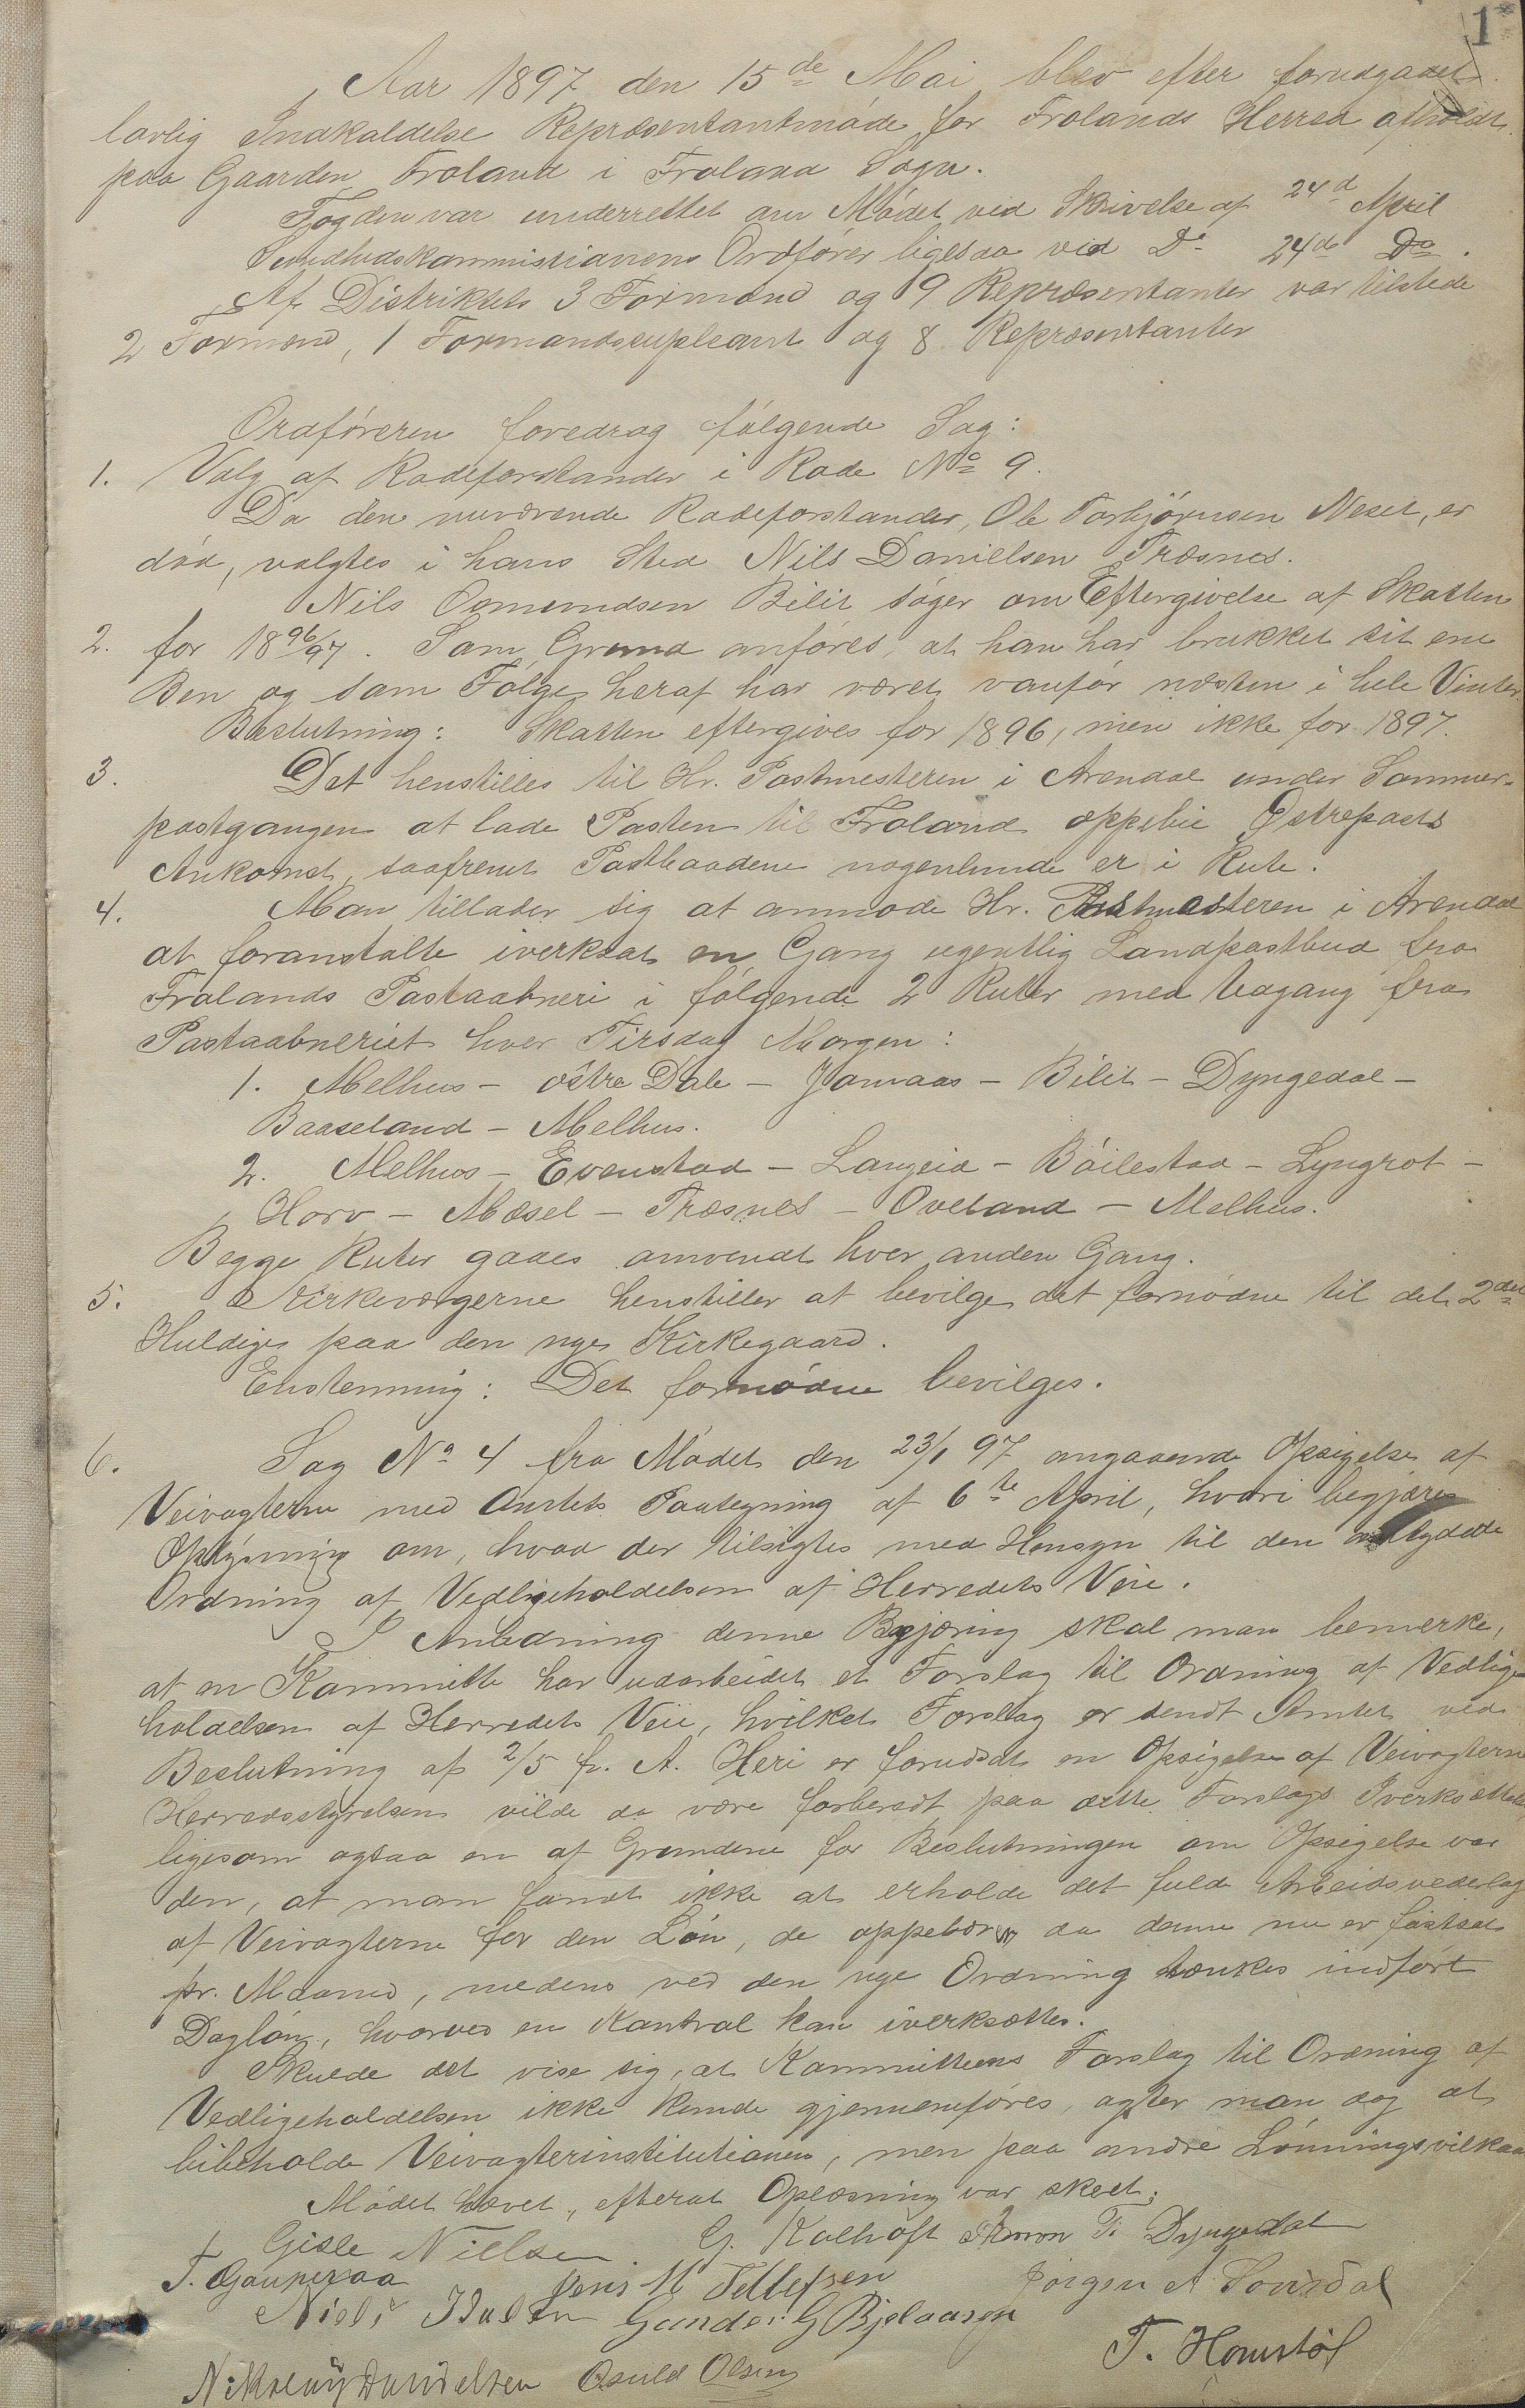 1
Aar 1897 den 15de Mai blev efter forudgaaet
lovlig Indkaldelse Repræsentantmøde for Frolands Herred afholdt
paa Gaarden Froland i Froland Sogn.
Fogden var underrettet om Mødet ved Skrivelse af 24d April
Sundhedskommissionens Ordfører ligesaa ved Do 24de Do.
Af Distriktets 3 Formænd og 9 Repræsentanter var tilstede
2 Formænd, 1 Formandssupleant og 8 Repræsentanter
Ordføreren foredrog følgende Sag:
1. Valg af Rodeforstander i Rode No 9.
Da den nuværende Rodeforstander, Ole Torbjørnsen Neset, er
død, valgtes i hans Sted Nils Danielsen Træsnes.
Nils Osmundsen Bilit søger om Eftergivelse af Skatten
2. for 1896/97. Som Grund anføres, at han har brukket sit ene
Ben og som Følge heraf har været vanfør næsten i hele Vinter
Beslutning: Skatten eftergives for 1896, men ikke for 1897.
3. Det henstilles til Hr. Postmesteren i Arendal under Sommer-
postgangen at lade Posten til Froland oppebie Østreposts
Ankomst, saafremt Postbaadene nogenlunde er i Rute.
4. Man tillader sig at anmode Hr. Postmesteren i Arendal
at foranstalte iverksat en Gang ugentlig Landpostbud fra
Frolands Postaabneri i følgende 2 Ruter med Udgang fra
Postaabneriet hver Tirsdag Morgen:
1. Melhus - østre Dale - Jomaas - Bilit - Dyngedal -
Baaseland - Melhus.
2. Melhus - Evenstad - Langeid - Bøilestad - Lyngrot -
Horv - Mæsel - Træsnes - Oveland - Melhus.
Begge Ruter gaaes omvendt hver anden Gang.
5. Kirkeværgerne henstiller at bevilge det fornødne til det 2det
Huldige paa den nye Kirkegaard.
Enstemmig: Det fornødne bevilges.
6. Sag No 4 fra Mødet den 23/1 97 angaaende Opsigelse af
Veivogterne med Amtets Paategning af 6te April, hvori begjæres
Oplysning om, hvad der tilsigtes med Hensyn til den antydede
Ordning af Vedligeholdelsen af Herredets Veie.
I Anledning denne Begjæring skal man bemerke,
at en Kommitte har udarbeidet et Forslag til Ordning af Vedlige
holdelsen af Herredets Veie, hvilket Forslag er sendt Amtet ved
Beslutning af 2/5 f. A. Heri er forudsat en Opsigelse af Veivogterne
Herredsstyrelsen vilde da være forberedt paa dette Forslags Iverksættelse
ligesom ogsaa en af Grundene for Beslutningen om Opsigelse var
den, at man fandt ikke at erholde det fulde Arbeidsvederlag
af Veivogterne for den Løn, de oppebær da denne nu er fastsat
pr. Maaned, medens ved den nye Ordning tænkes indført
Dagløn, hvorved en Kontrol kan iverksættes.
Skulde det vise sig, at Kommitteens Forslag til Ordning af
Vedligeholdelsen ikke kunde gjennemføres, agter man dog at
bibeholde Veivogterinstitutionen, men paa andre Lønningsvilkaar
Mødet hævet, efterat Oplæsning var skeet.
Gisle Nielsen. G. Kalhøft Simon T. Dyngedal
T. Gauperaa Jens M Tellefsen Jørgen A Sovsdal
Niels Gunder G Bjelaasen
T. Homstøl
Nikolay Danielsen Osuld Olsen